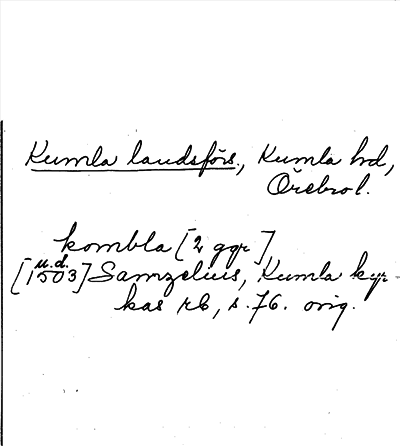 Kumla landsförs., Kumla hd,
Örebro l.
kombla [2 ggr]
u.d.
[1503] Samzelius, Kumla kyr
kas rb, s. 76. orig.